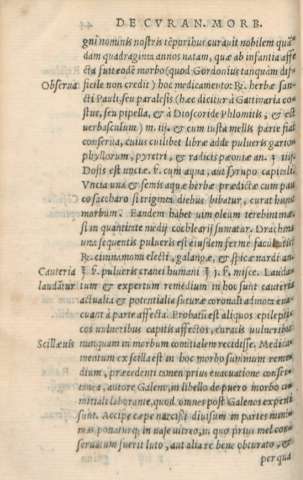 44 DE CVRAN. MORB.
gni nominis nostris tēporibus curauit nobilem quā
dam quadraginta annos natam, quæ ab infantia affe
cta fuit eodē morbo (quod Gordonius tanquàm dif
Obserua. ficile non credit) hoc medicamento: ℞. herbæ san-
cti Pauli seu paralesis (hæc dicitur à Gattinaria co
stus, seu pipella, & à Dioscoride Phlomitis, & est
verbasculum) m. iij. & cum iusta mellis parte fiat
conserua, cuius cuilibet libræ adde pulueris gario
phyllorum, pyretri, & radicis pæoniæ an. ʒ iij.
Dosis est vnciæ. ß. cum aqua, aut syrupo capituli
Vncia vna & semis aquæ herbæ prædictæ cum pau
co saccharo si triginta diebus bibatur, curat hunc
morbum. Eandem habet vim oleum terebinthinæ
si in quantitate medij cochlearij sumatur. Drachma
vna sequentis pulueris est eiusdem fermè facultatis
℞. cinnamomi electi, galangæ, & spicæ nardi an.
Cauteria ʒ ß. pulueris cranei humani ʒ j. ß. misce. Lauda-
laudātur tum & expertum remedium in hoc sunt cauteria
actualia & potentialia suturæ coronali admota
cuant à parte affecta. Probatū est aliquos epilepti-
cos vulneribus capitis affectos, curatis vulneribus
Scillæ vis nunquam in morbum comitialem recidisse. Medica
mentum ex scilla est in hoc morbo summum reme
dium, præcedenti tamen prius euacuatione
autore Galeno, in libello de puero morbo co
mitiali laborante, quod omnes post Galenum experti
sunt. Accipe cæpe narcissi diuisum in partes
ponaturque in vase vitreo, in quo prius mel con
seruatum fuerit luto, aut alia re bene obturato, &
per qua